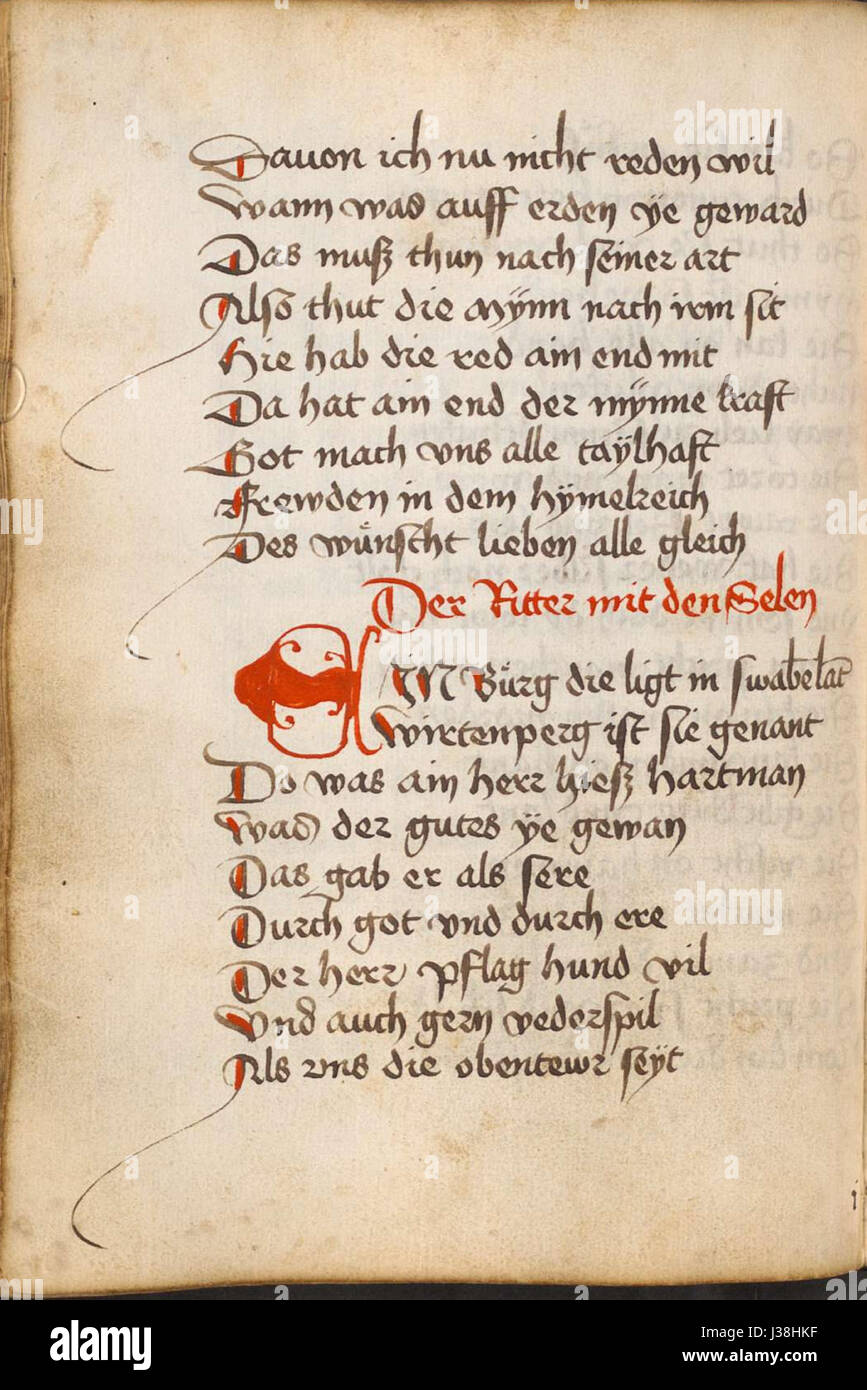 Dauon ich nu nicht reden wil
Wann was auff erden ÿe geward
Das muß thun nach seiner art
Also thut die mÿnn nach irm sit
Hie hab die red ain end mit
Da hat ain end der mÿnne kraft
Got mach vns alle taÿlhaft
Frewden in dem hÿmelreich
Des wünscht lieben alle gleich
Der Ritter mit den Selen
EIN Bürg die ligt in swabelat
Wirtenperg ist sie genant
Do was ain herr hieß hartman
Was der gutes ÿe gewan
Das gab er als sere
Durch got vnd durch ere
Der herr pflag hund vil
Vnd auch gern vederspil
Als vns die obentewr seÿt
alamy
alamy stock photo
J38HKF
www.alamy.com